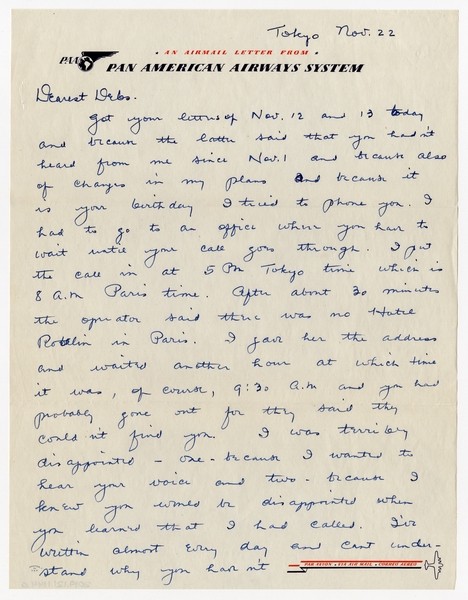 Tokyo Nov. 22
• AN AIRMAIL LETTER FROM •
PAA
PAN AMERICAN AIRWAYS SYSTEM
Dearest Debs.
Got your letters of Nov. 12 and 13 today
and because the latter said that you hadn't
heard from me since Nov. 1 and because also
of changes in my plans and because it
is your birthday I tried to phone you. I
had to go to an office where you have to
wait until your call goes through. I put
the call in at 5 PM Tokyo time which is
8 A.M Paris time. After about 30 minutes
the operator said there was no Hotel
in Paris. I gave her the address
and waited another hour at which time
it was, of course, 9:30 A.M and you had
probably gone out for they said they
couldn't find you. I was terribly
disappointed - one - because I wanted to
hear your voice and two - because I
knew you would be disappointed when
you learned that I had called. I've
written almost every day and cant under-
stand why you havn't
PAR AVION • VIA AIR MAIL • CORREO AEREO